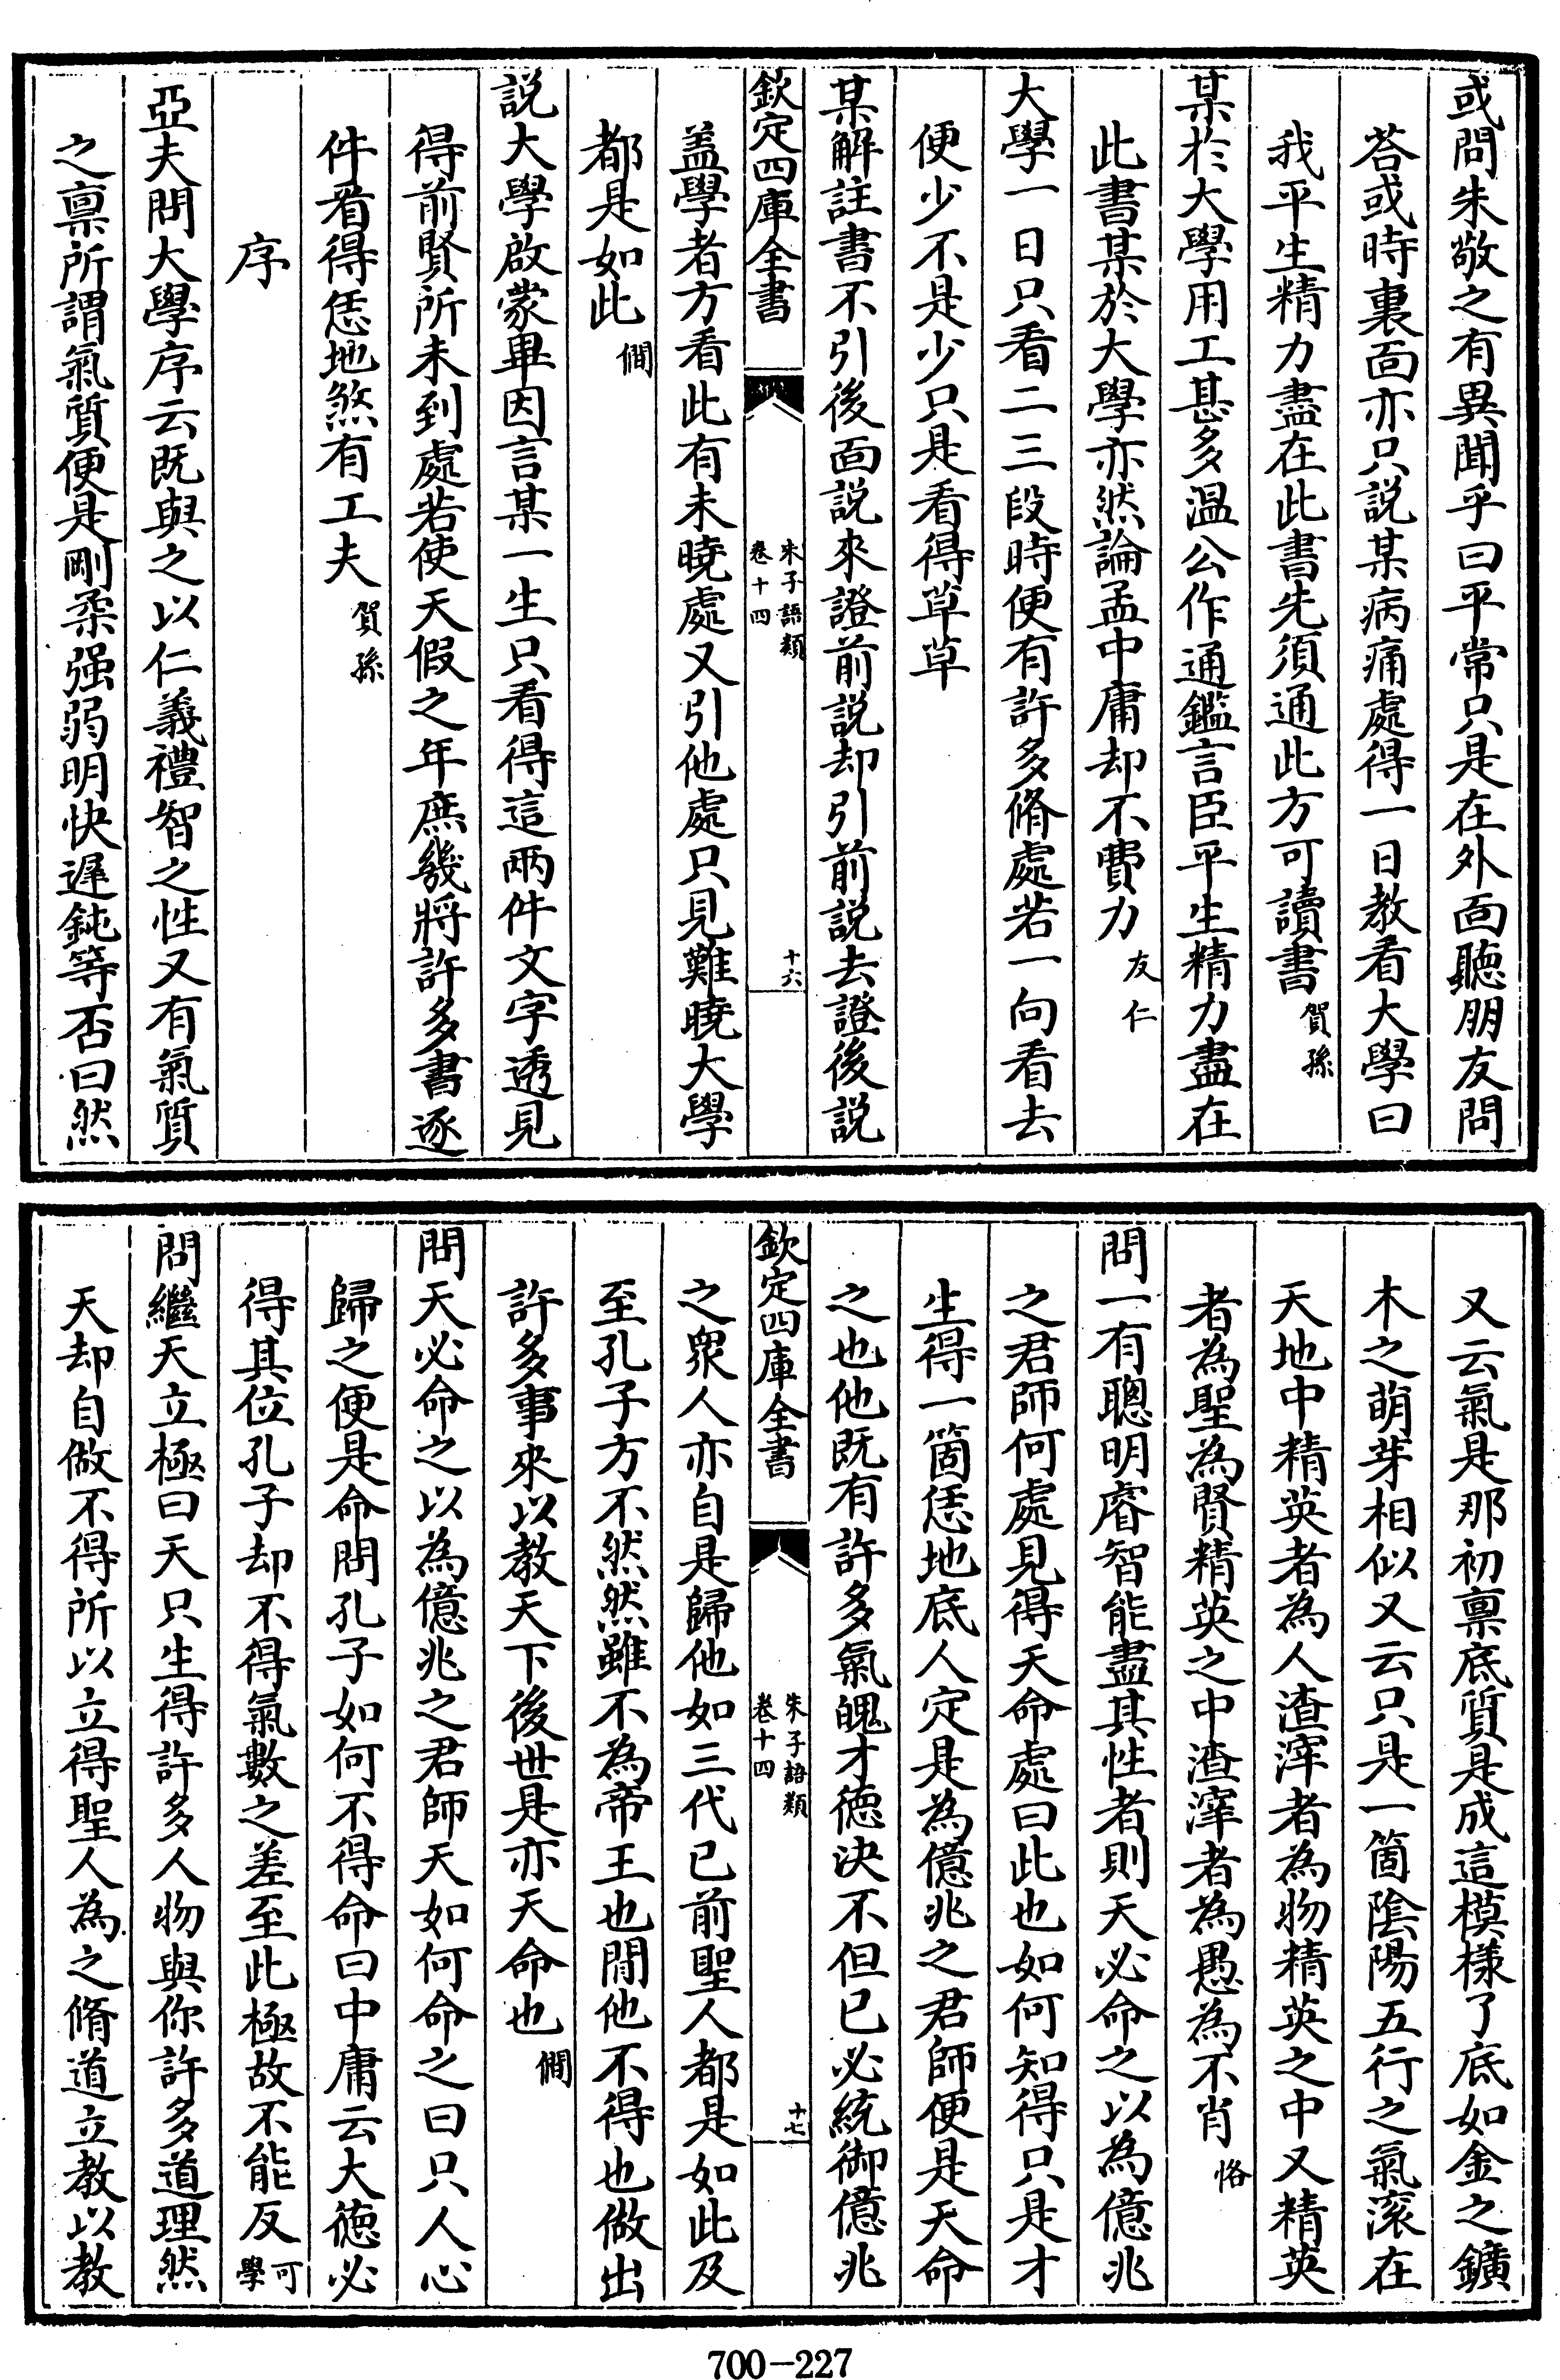 或問朱敬之有異聞乎曰平常只是在外面聽朋友問
荅或時裏面亦只說某病痛處得一日教看大學曰
我平生精力盡在此書先須通此方可讀書賀孫
某於大學用工甚多溫公作通鑑言臣平生精力盡在
此書某於大學亦然論孟中庸却不費力友仁
大學一日只看二三段時便有許多脩處若一向看去
便少不是少只是看得草草
某解註書不引後面說來證前說却引前說去證後說
欽定四庫全書
朱子語類
卷十四
十六
盖學者方看此有未曉處又引他處只見難曉大學
都是如此僩
說大學啟蒙畢因言某一生只看得這兩件文字透見
得前賢所未到處若使天假之年庶幾將許多書逐
件看得恁地煞有工夫賀孫
序
亞夫問大學序云既與之以仁義禮智之性又有氣質
之禀所謂氣質便是剛柔强弱明快遲鈍等否曰然
又云氣是那初禀底質是成這模樣了底如金之鑛
木之萌芽相似又云只是一箇陰陽五行之氣滚在
天地中精英者為人渣滓者為物精英之中又精英
者為聖為賢精英之中渣滓者為愚為不肖恪
問一有聰明睿智能盡其性者則天必命之以為億兆
之君師何處見得天命處曰此也如何知得只是才
生得一箇恁地底人定是為億兆之君師便是天命
之也他既有許多氣魄才德決不但已必統御億兆
欽定四庫全書
朱子語類
卷十四
十七
之衆人亦自是歸他如三代已前聖人都是如此及
至孔子方不然然雖不為帝王也閒他不得也做出
許多事來以教天下後世是亦天命也僩
問天必命之以為億兆之君師天如何命之曰只人心
歸之便是命問孔子如何不得命曰中庸云大德必
得其位孔子却不得氣數之差至此極故不能反可學
問繼天立極曰天只生得許多人物與你許多道理然
天却自做不得所以立得聖人為之脩道立教以教
700-227